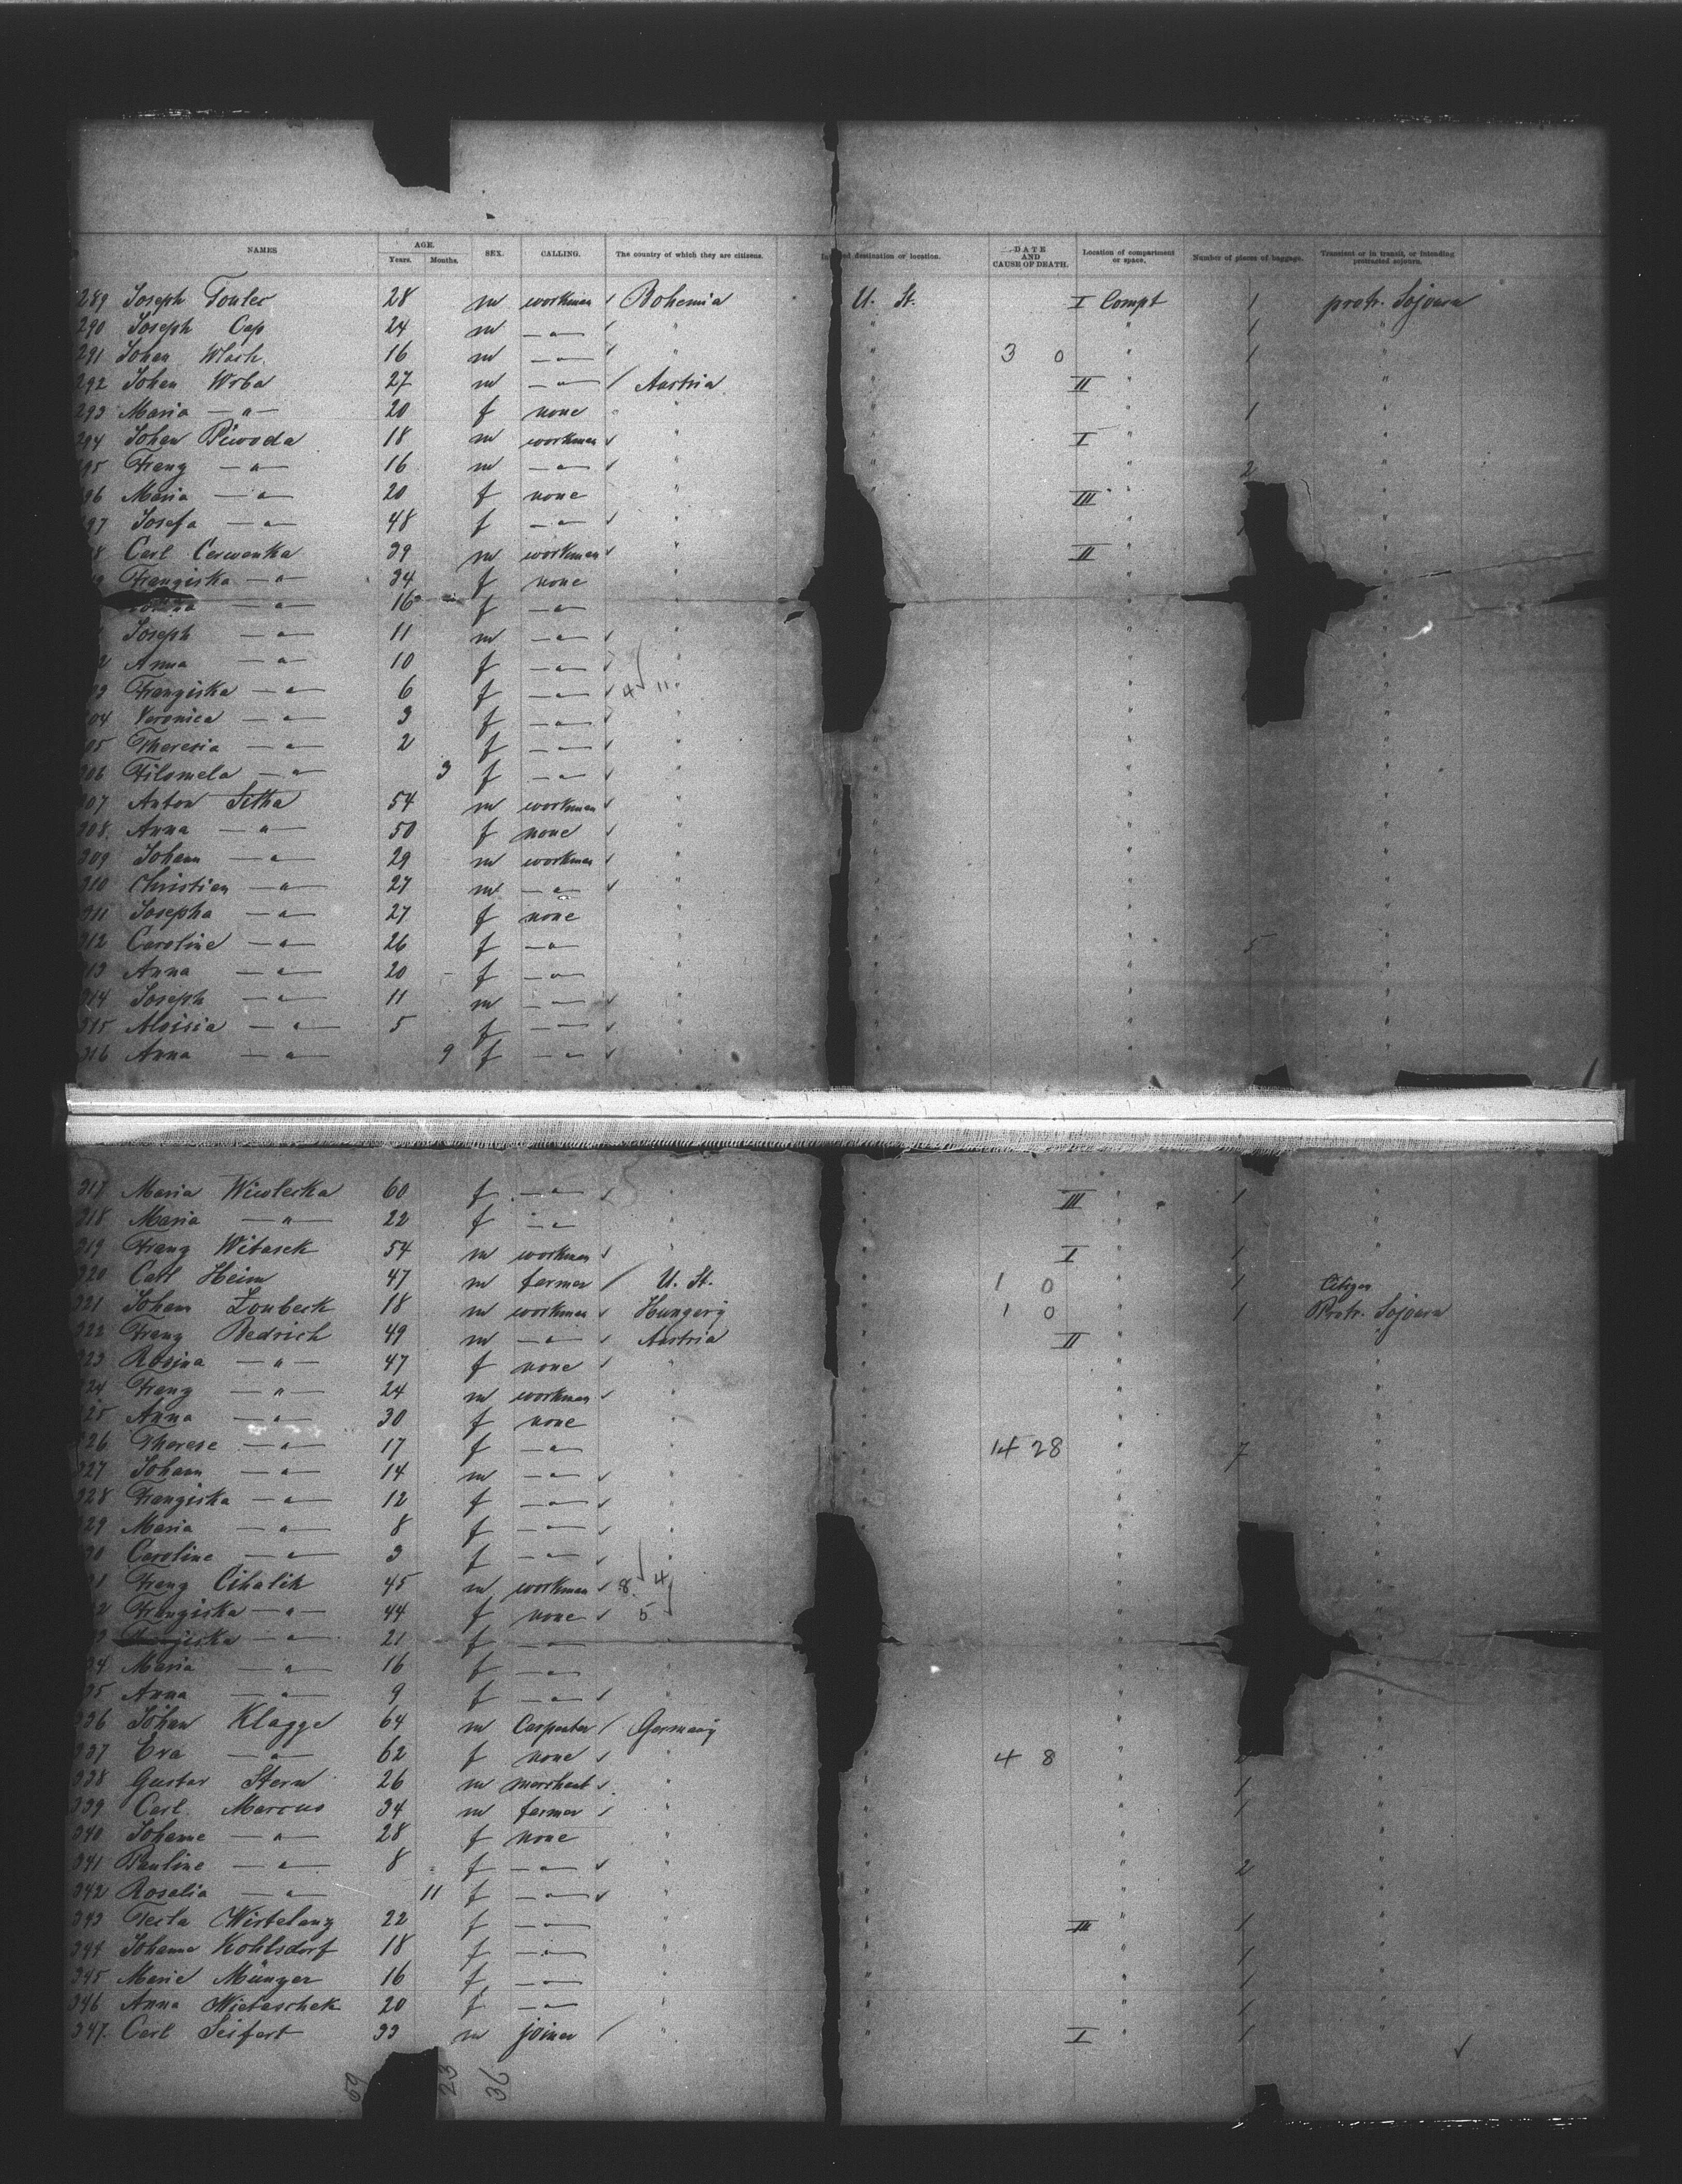 NAMES AGE. Years. Months. SEX. CALLING. The country of which they are citizens. destination or location. DATE AND CAUSE OF DEATH. Location of compartment or space. Number of pieces of baggage. Transient or in transit, or intending protracted sojourn.
289 Joseph Toulec 28 m workman / Bohemia U. St. I Compt 1 protr. Sojourn
290 Joseph Cap 24 m —"— / " " " 1 "
291 Johan Wlach. 16 m —"— ✓ " " 3 0 " 1
292 Johan Wrba 27 m —"— / Austria " II " "
293 Maria —"— 20 f none " " " 1
294 Johan Piwoda 18 m workman ✓ " " I "
95 Franz —"— 16 m —"— ✓ " " " 2 "
96 Maria —"— 20 f none " III " "
97 Josefa —"— 48 f —"— ✓ " " "
8 Carl Cerwenka 39 m workman ✓ " II " "
Franziska —"— 34 f none " " "
—"— 16 f —"—
Joseph —"— 11 m —"— ✓ " " "
2 Anna —"— 10 f —"— ✓ " " "
03 Franziska —"— 6 f —"— ✓ 4 11 " "
04 Veronica —"— 3 f —"— ✓ " " "
05 Theresia —"— 2 f —"— ✓ " " " "
306 Filomela —"— 3 f —"— ✓ " " " "
307 Anton Setha 54 m workman ✓ " " " "
308. Anna —"— 50 f none ✓ " " " "
309 Johann —"— 29 m workman ✓ " " " "
310 Christian —"— 27 m —"— ✓ " " " "
311 Josepha —"— 27 f none " " " "
312 Caroline —"— 26 f —"— " " " 5 "
313 Anna —"— 20 f —"— " " " "
314 Joseph —"— 11 m —"— ✓ " " " "
315 Aloisia —"— 5 f —"— ✓ " " " "
316 Anna —"— 9 f —"— ✓ " " " "
317 Maria Wiwlecka 60 f —"— ✓ " III " 1 "
318 Maria —"— 22 f —"— " " " "
319 Franz Witasek 54 m workman ✓ " " I " 1 "
320 Carl Heim 47 m farmer / U. St. " 1 0 " 1 Citizen
321 Johann Zoubeck 18 m workman ✓ Hungery " 1 0 " 1 Protr. Sojourn
322 Franz Bedrich 49 m —"— ✓ Austria " II " "
323 Rosina —"— 47 f none ✓ " " " "
324 Franz —"— 24 m workman ✓ " " " "
325 Anna —"— 30 f none " " " "
326 Therese —"— 17 f —"— " " 14 28 " 7 "
327 Johann —"— 14 m —"— ✓ " " " "
328 Franziska —"— 12 f —"— ✓ " " " "
329 Maria —"— 8 f —"— ✓ " " "
30 Caroline —"— 3 f —"— ✓ " " "
31 Franz Cihalik 45 m workman ✓ 8 4 " "
2 Franziska —"— 44 f none ✓ 5 " "
3 Franziska —"— 21 f —"— " "
34 Maria —"— 16 f —"— " " "
35 Anna —"— 9 f —"— ✓ " " "
336 Johan Klagge 64 m Carpenter / Germany " "
337 Eva —"— 62 f none ✓ " " 4 8 " "
338 Gustav Stern 26 m merchant ✓ " " " 1 "
339 Carl Marcus 34 m farmer ✓ " " " 1 "
340 Johanne —"— 28 f none " " " "
341 Pauline —"— 8 f —"— ✓ " " " 2 "
342 Rosalia —"— 11 f —"— ✓ " " " "
343 Tecla Wistelanz 22 f —"— " " III " 1 "
344 Johanne Kohlsdorf 18 f —"— " " " 1 "
345 Marie Münzer 16 f —"— " " " 1 "
346 Anna Wietaschek 20 f —"— " " " 1 "
347. Carl Seifert 33 m joiner / " " I " 1 " ✓
59 23 36